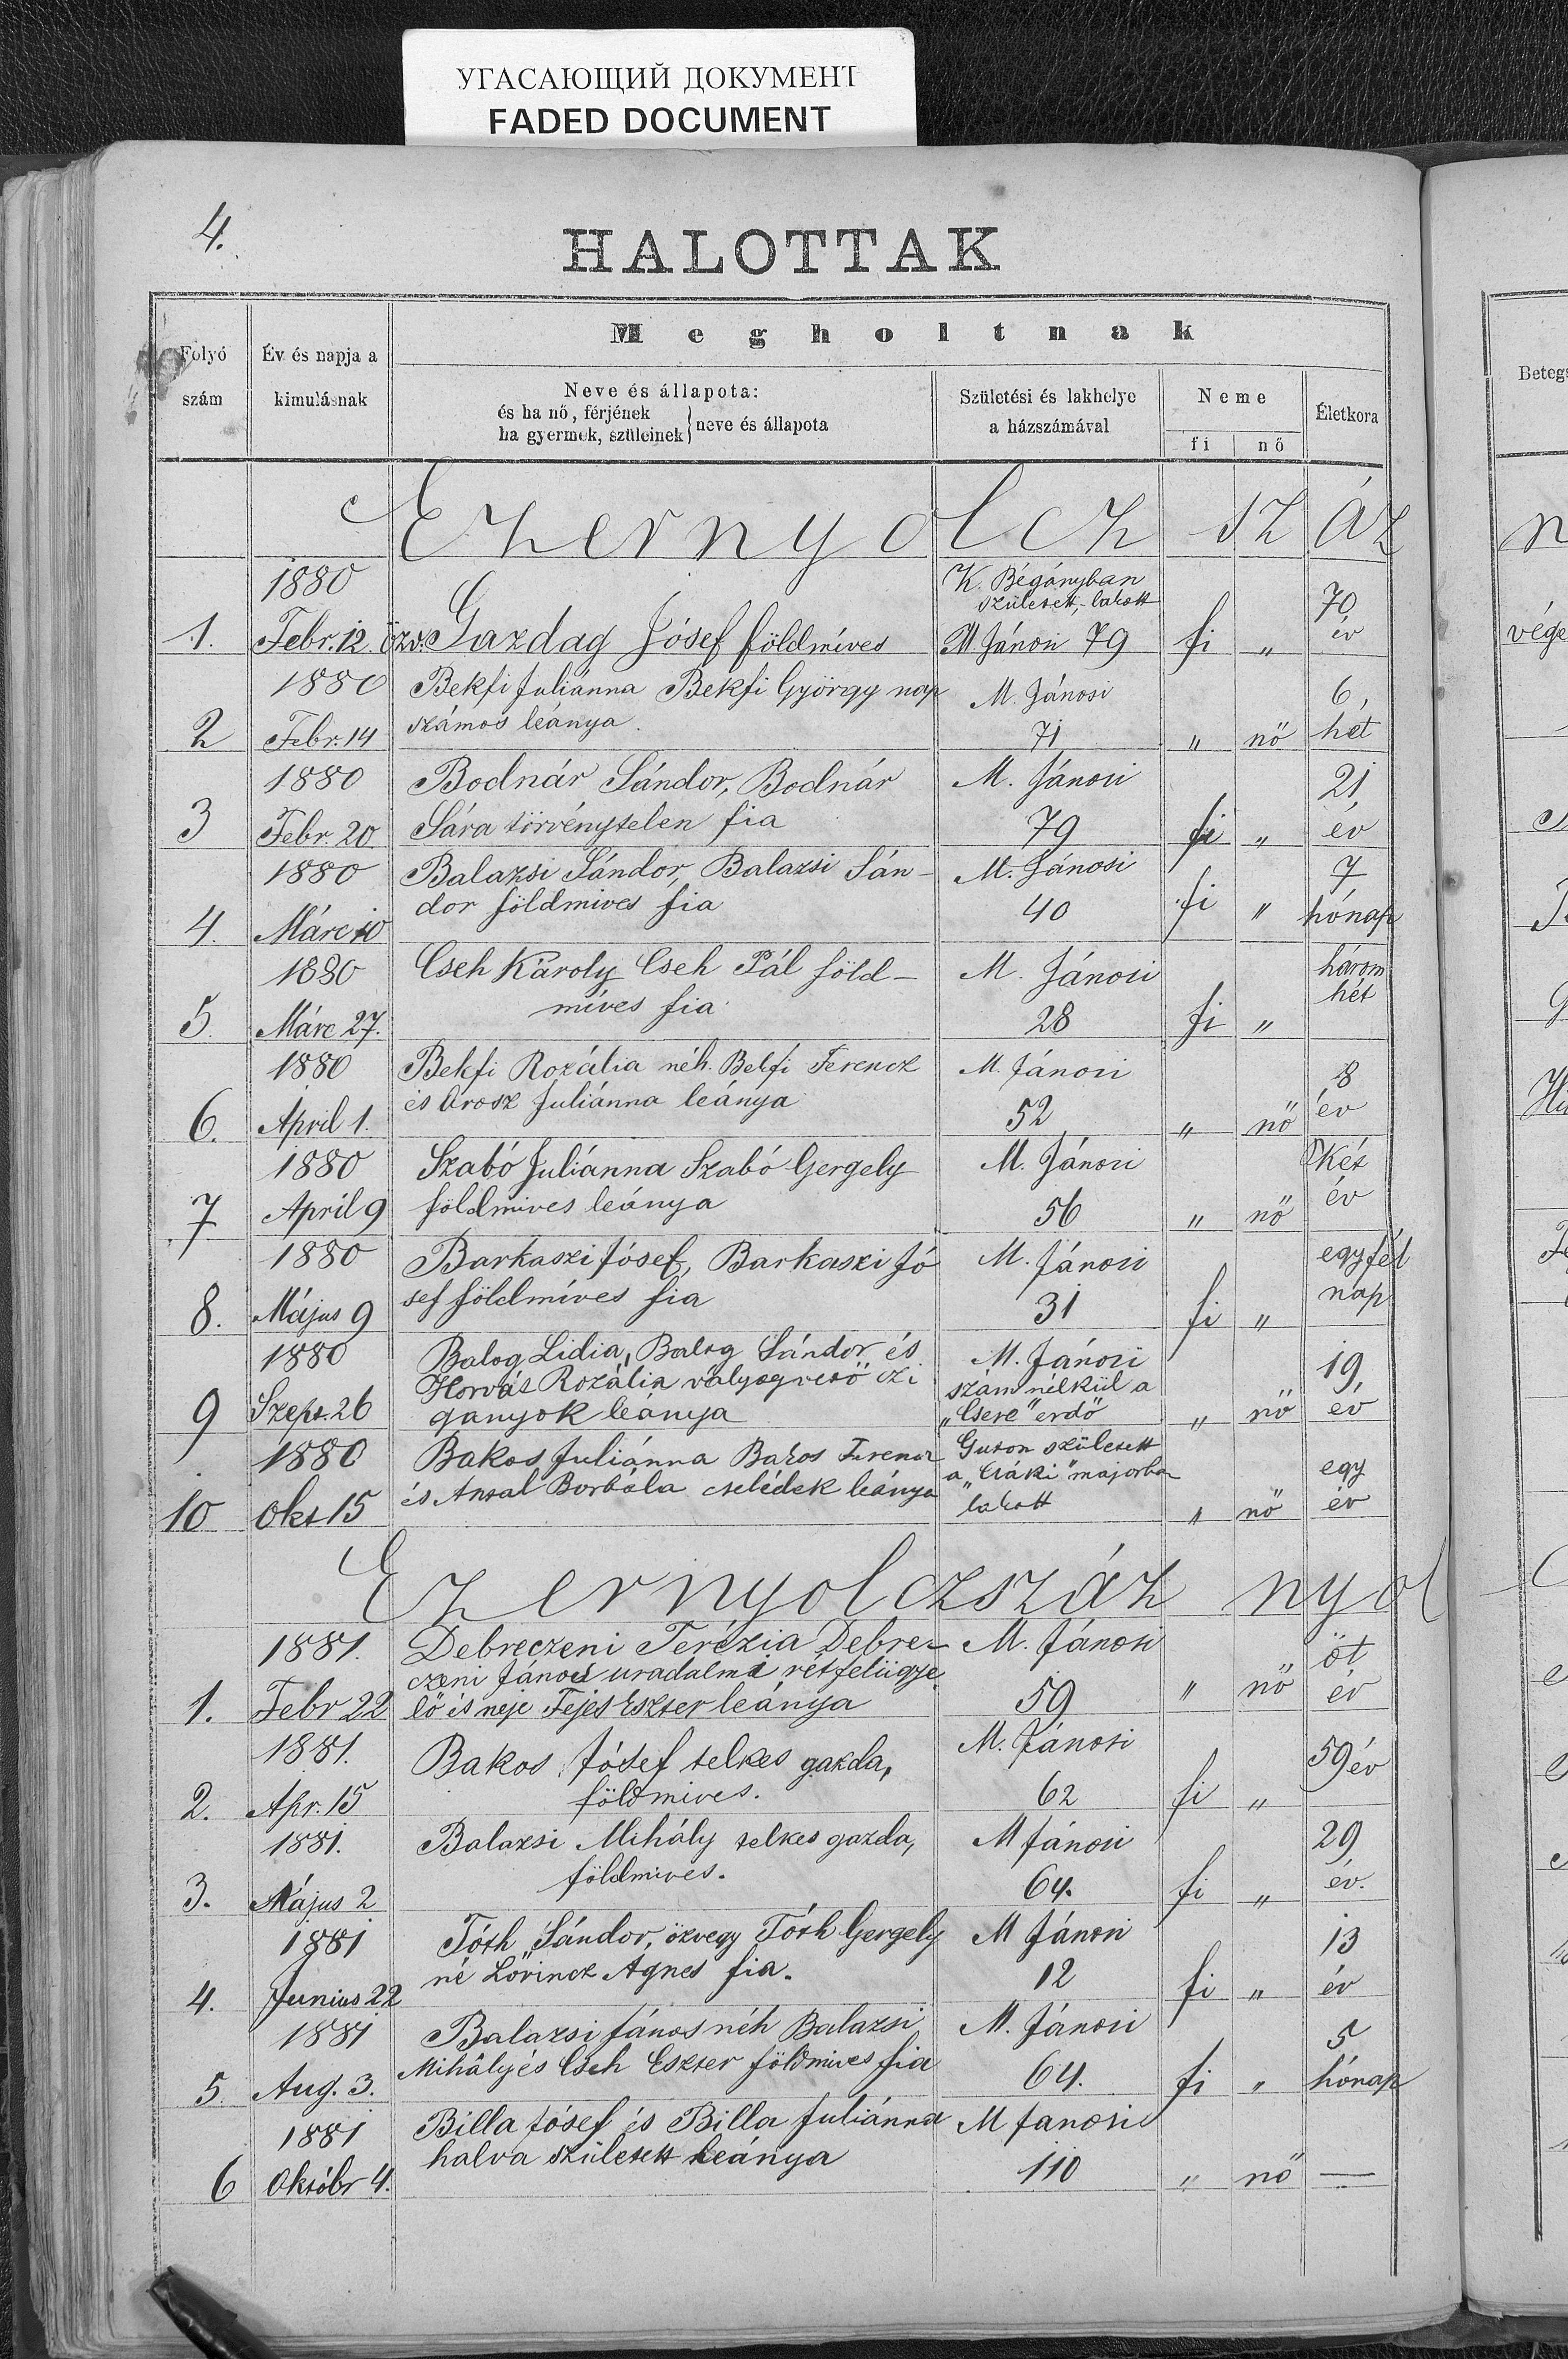 УГАСАЮЩИЙ ДОКУМЕНТ
FADED DOCUMENT
4.
HALOTTAK
Folyó szám
Év és napja a kimulásnak
Megholtnak
Neve és állapota:
és ha nő, férjének
ha gyermek, szüleinek } neve és állapota
Születési és lakhelye
a házszámával
Neme
fi nő
Életkora
Ezernyolcz száz
1880 K. Bégányban
született, lakott 70
1. Febr. 12. özv. Gazdag Jósef földmíves M Jánosi 79 fi " év
1880 Bekfi Juliánna Bekfi György nap M. Jánosi 6,
2 Febr. 14 számos leánya. 71 " nö hét
1880 Bodnár Sándor, Bodnár M. Jánosi 21,
3 Febr. 20 Sára törvénytelen fia 79 fi " év
1880 Balazsi Sándor, Balazsi Sán- M. Jánosi 7
4. Márc 10 dor földmives fia 40 fi " hónap
1880 Cseh Károly Cseh Pál föld- M. Jánosi három
5. Márc 27. míves fia 28 fi " hét
1880 Bekfi Rozália néh. Bekfi Ferencz M. Jánosi 8
6. April 1. és Orosz Juliánna leánya 52 " nö év
1880 Szabó Juliánna Szabó Gergely M. Jánosi Két
7 April 9 földmives leánya 56 " nö év
1880 Barkaszi Jósef, Barkaszi Jó M. Jánosi egy fél
8. Május 9 sef földmíves fia 31 fi " nap
1880 Balog Lidia, Balog Sándor és M. Jánosi 19,
Horvát Rozália vályogvető czi szám nélkül a
9 Szept. 26 gányok leánya „Csere" erdö " nö év
1880 Bakos Juliánna Bakos Ferencz Guton született
és Antal Borbála cselédek leánya a majorban egy
10 Okt 15 lakott " nö év
Ezernyolczszáz nyol
1881. Debreczeni Terézia Debre- M. Jánosi öt
czeni János uradalmi rétfelügye
1. Febr 22 lö és neje Fejes Eszter leánya 59 " nö év
1881. Bakos Jósef telkes gazda, M. Jánosi 59 év
2. Apr. 15 földmives. 62 fi "
1881. Balazsi Mihály telkes gazda, M Jánosi 29
3. Május 2 földmives. 64. fi " év.
1881 Tóth Sándor, özvegy Tóth Gergely M Jánosi 13
4. Junius 22 né Lörincz Agnes fia. 12 fi " év
1881 Balazsi János néh Balazsi M. Jánosi 5
5. Aug. 3. Mihály és Cseh Eszter földmives fia 64. fi " hónap
1881 Billa Jósef és Billa Juliánna M Janosi
6 Októbr 4. halva született leánya 110 " nö —
Betegs
n
vége